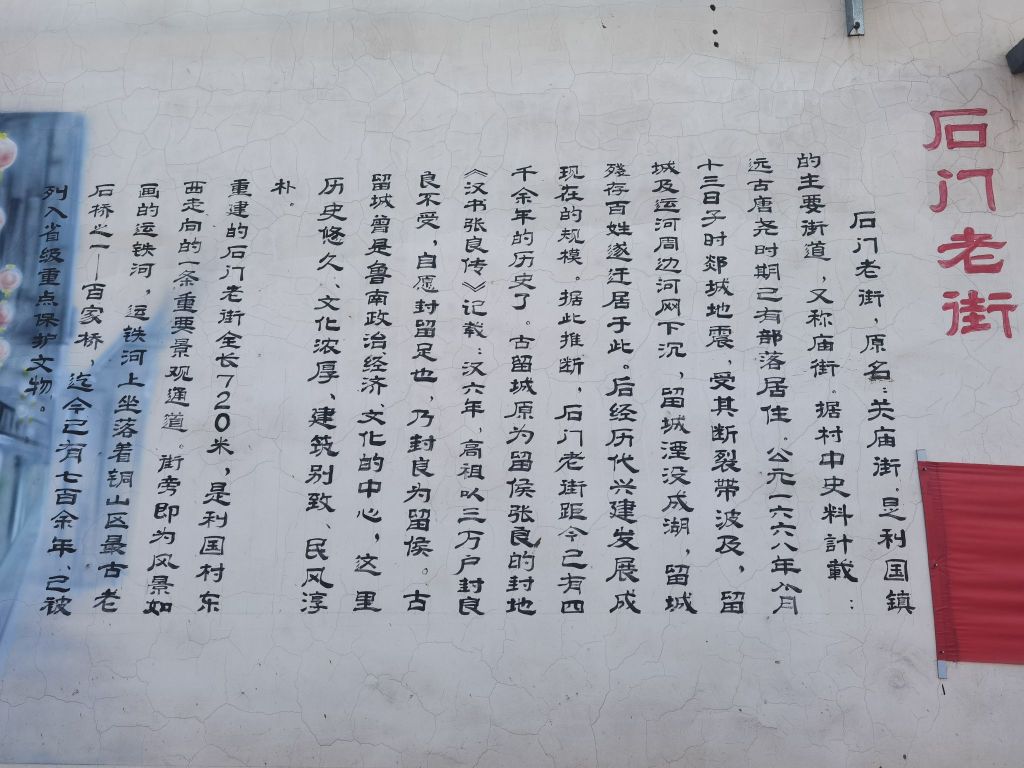 石门老街
石门老街，原名关庙街，是利国镇
的主要街道，又称庙街。据村中史料計載：
远古唐尧时期已有部落居住。公元一六六八年八月
十三日子时郯城地震，受其断裂帶波及，留
城及运河周边河网下沉，留城湮没成湖，留城
残存百姓遂迁居于此。后经历代兴建发展成
现在的规模。据此推断，石门老街距今已有四
千余年的历史了。古留城原为留侯张良的封地
《汉书张良传》记载：汉六年，高祖以三万户封良
良不受，自愿封留足也，乃封良为留侯。古
留城曾是鲁南政治经济、文化的中心，这里
历史悠久、文化浓厚、建筑别致、民风淳
朴。
重建的石门老街全长720米，是利国村东
西走向的一条重要景观通道。街旁即为风景如
画的运铁河，运铁河上坐落着铜山区最古老
石桥之一——百家桥，迄今已有七百余年、已被
列入省级重点保护文物。